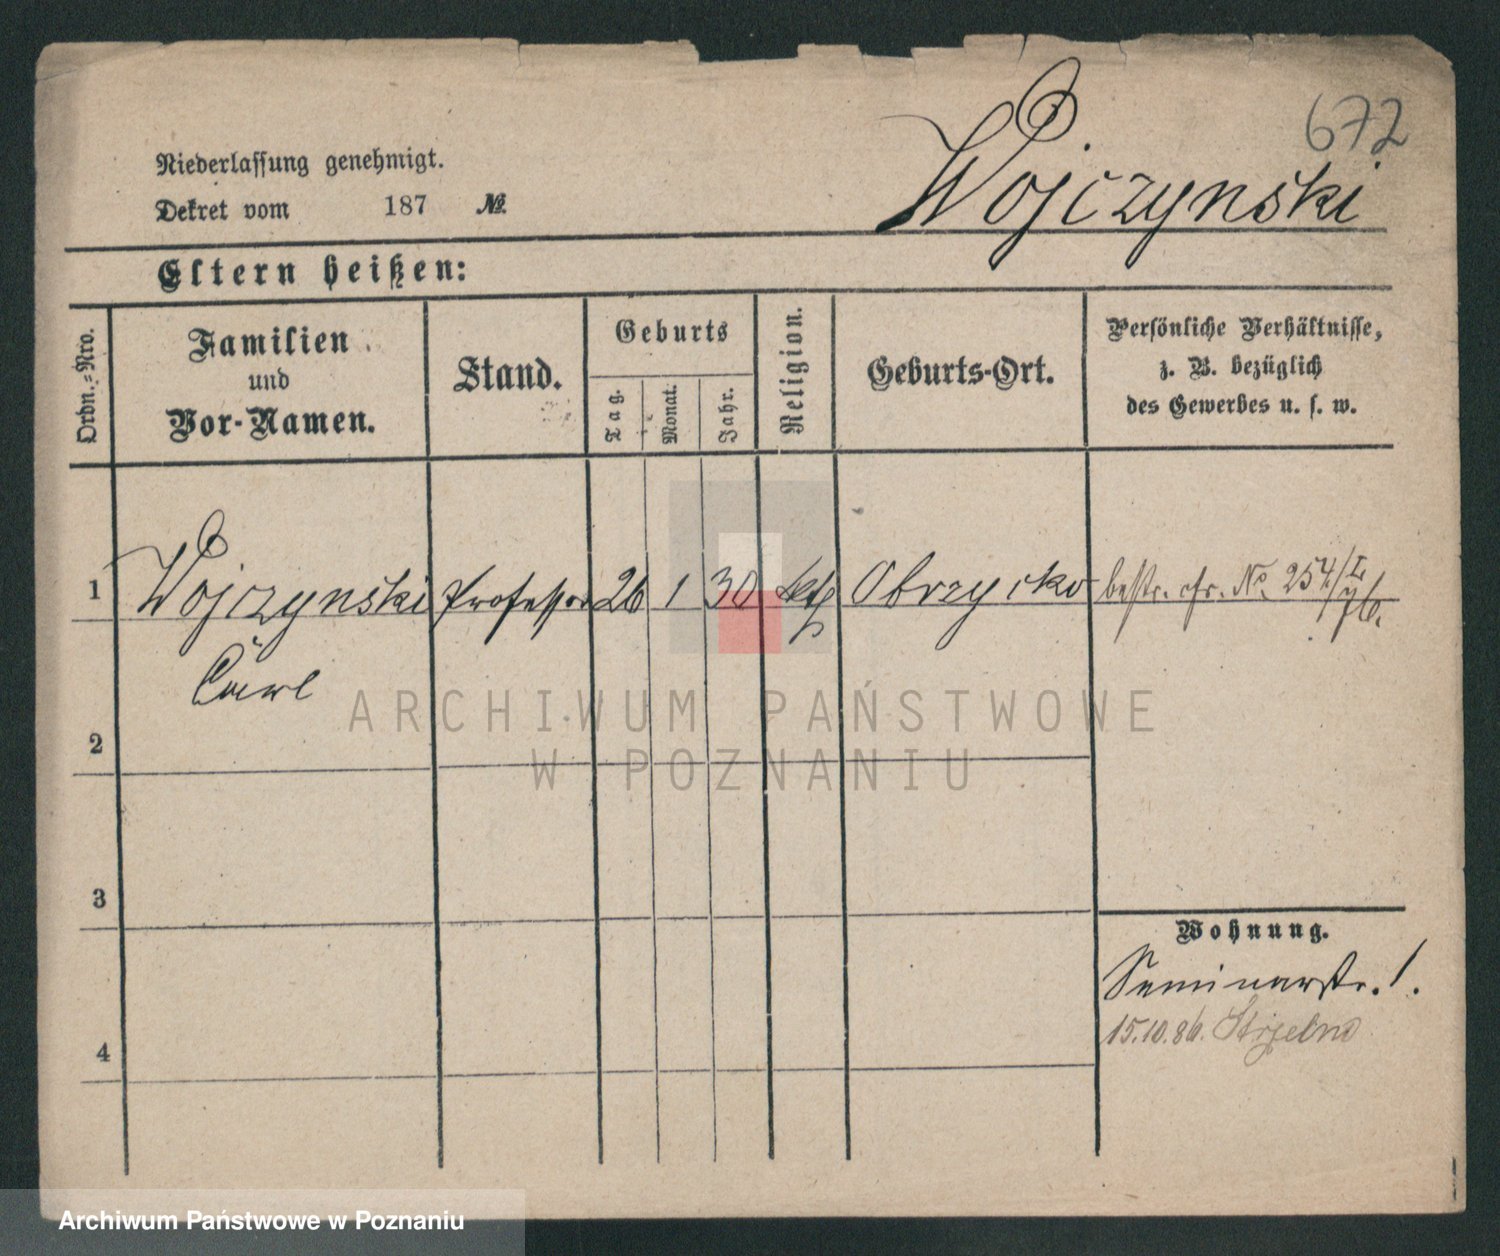 672
Wojczynski
Niederlassung genehmigt.
Dekret vom 187 №
Eltern heißen:
Ordn.-Nro.
Familien
und
Vor-Namen.
Stand.
Geburts
Tag.
Monat.
Jahr.
Religion.
Geburts-Ort.
Persönliche Verhältnisse,
z. B. bezüglich
des Gewerbes u. s. w.
1 Wojczynski Professor 26 1 30 kth Obrzycko bestr. cfr. No. 254/I
76.
Carl
2
3
4
Wohnung.
Seminarstr. 1.
15.10.86. Strzelno
ARCHIWUM PAŃSTWOWE
W POZNANIU
Archiwum Państwowe w Poznaniu